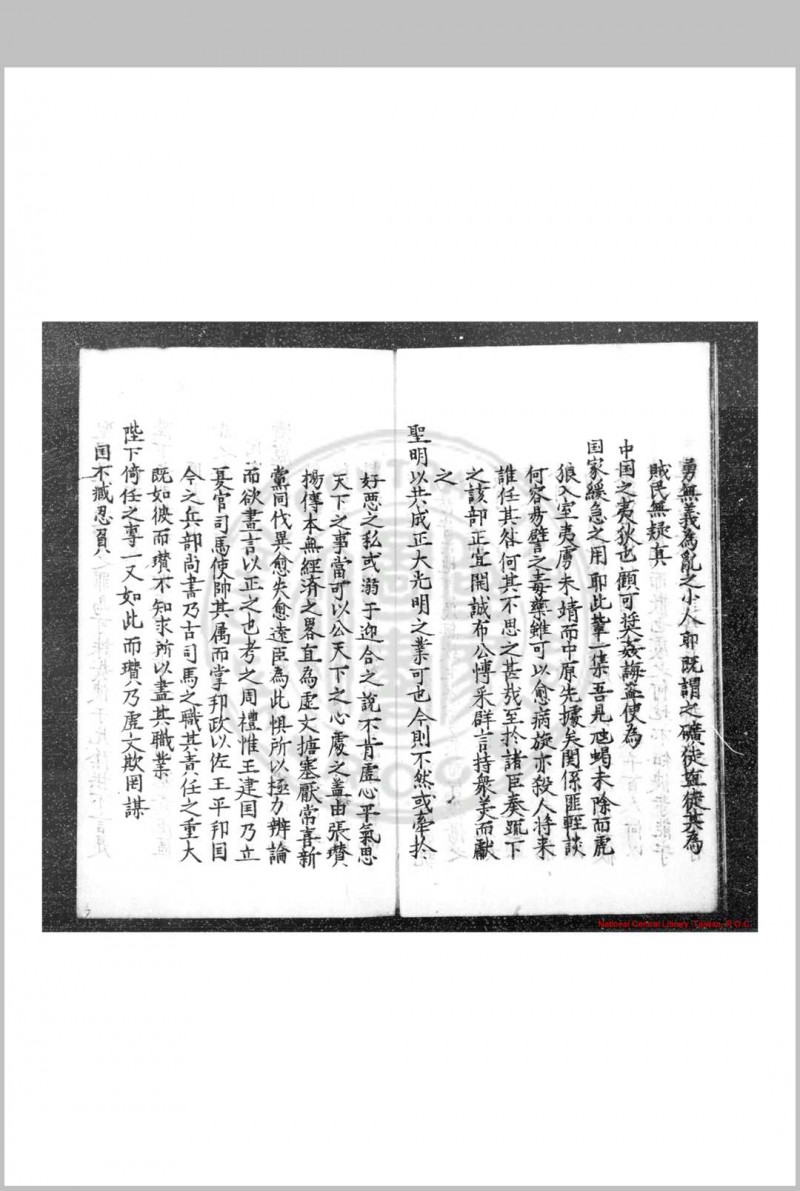 勇無義為亂之小人耶既謂之礦徒盐徒其為
賊民無疑真
中国之夷狄也顧可奨姦誨盗使為
国家緩急之用耶此輩一集吾見虺蝎未除而虎
狼入室夷虜未靖而中原先據矣関係匪軽談
何容昜譬之毒藥雖可以愈病旋亦殺人将来
誰任其咎何其不思之甚哉至扵諸臣奏疏下
之該部正宜開誠布公博采群言持衆美而献
之
聖明以共成正大光明之業可也今則不然或牽扵
好悪之私或溺于迎合之說不肯虚心平氣思
天下之事當可以公天下之心處之盖由張瓚
揚傳本無經濟之畧直為虚文搪塞厭常喜新
黨同伐異愈失愈逺臣為此惧所以極力辨論
而欲盡言以正之也考之周禮惟王建国乃立
夏官司馬使帥其属而掌邦政以佐王平邦国
今之兵部尚書乃古司馬之職其責任之重大
既如彼而瓚不知求所以盡其職業
陛下倚任之專一又如此而瓚乃虚文欺罔謀
国不臧忍負
National Central Library, Taiwan, R.O.C.